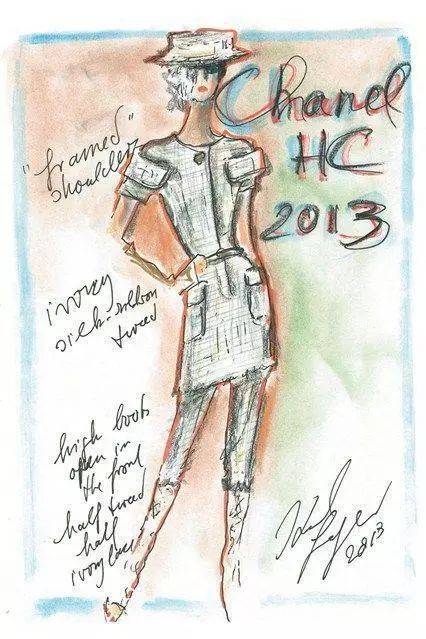 Chanel
HC
2013
"framed"
shoulders
ivory
silk-ribbon
tweed
high boots
open in
the front
half tweed
half
ivory lace
2013